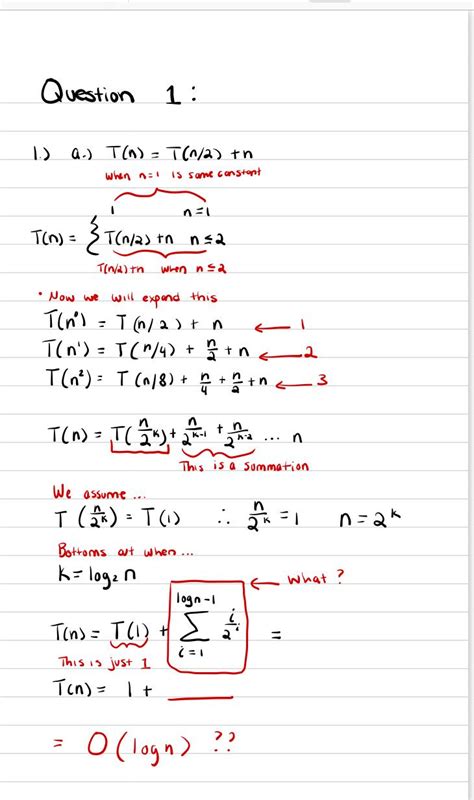 Question 1:
1.) a.) T(n) = T(n/2) + n
when n=1 is some constant
1 n=1
T(n) = { T(n/2) + n n ≤ 2
T(n/2)+n when n ≤ 2
• Now we will expand this
T(n⁰) = T(n/2) + n ← 1
T(n¹) = T(n/4) + n/2 + n ← 2
T(n²) = T(n/8) + n/4 + n/2 + n ← 3
T(n) = T(n/2ᵏ) + n/2ᵏ⁻¹ + n/2ᵏ⁻² ... n
This is a summation
We assume ...
T(n/2ᵏ) = T(1) ∴ n/2ᵏ = 1 n = 2ᵏ
Bottoms out when ...
k = log₂ n
← what?
logn-1
T(n) = T(1) + ∑ i/2ⁱ =
i=1
This is just 1
T(n) = 1 + ____
= O(logn) ??